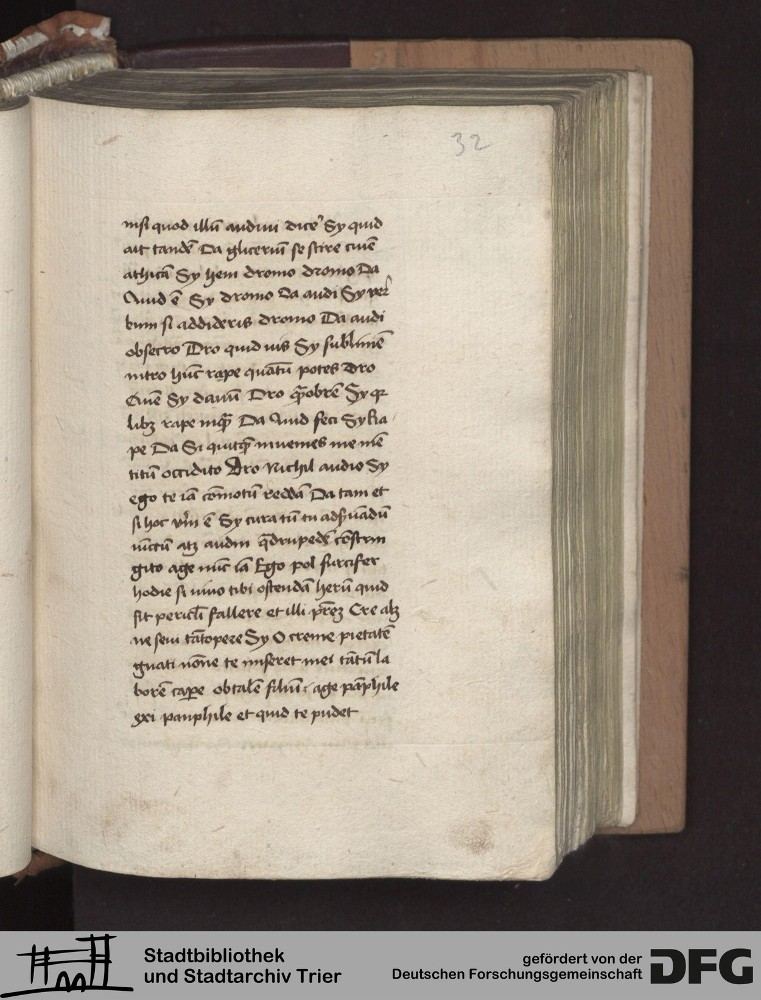 32
nisi quod illū audiui dice᷑ Sy quid
ait tandē Da gliceriū se scire ciuē
athicā Sy hem dromo dromo Da
Quid ē Sy dromo Da audi Sy ver
bum si addideris dromo Da audi
obsecro Dro quid uis Sy sublimē
intro hūc rape quātū potes Dro
Quē Sy dauū Dro q̄obrē Sy q̇
libꝫ rape inq̄ Da Quid feci Sy Ra
pe Da Si quicq̄ inuenies me mē
titū occidito Dro Nichil audio Sy
ego te iā cōmotū reddā Da tam et
si hoc verū ē Sy cura tū tu adẞuādū
uīctū atqꝫ audin q̄drupedē cōstrin
gito age nūc iā Ego pol furcifer
hodie si uiuo tibi ostendā herū quid
sit pericl̄i fallere et illi pr̄eꝫ Cre ah
ne seui tātopere Sy O creme pietatē
gnati nōne te miseret mei tātū la
borē capere ob talē filiū: age pāphile
exi panphile et quid te pudet
Stadtbibliothek
und Stadtarchiv Trier
gefördert von der
Deutschen Forschungsgemeinschaft
DFG